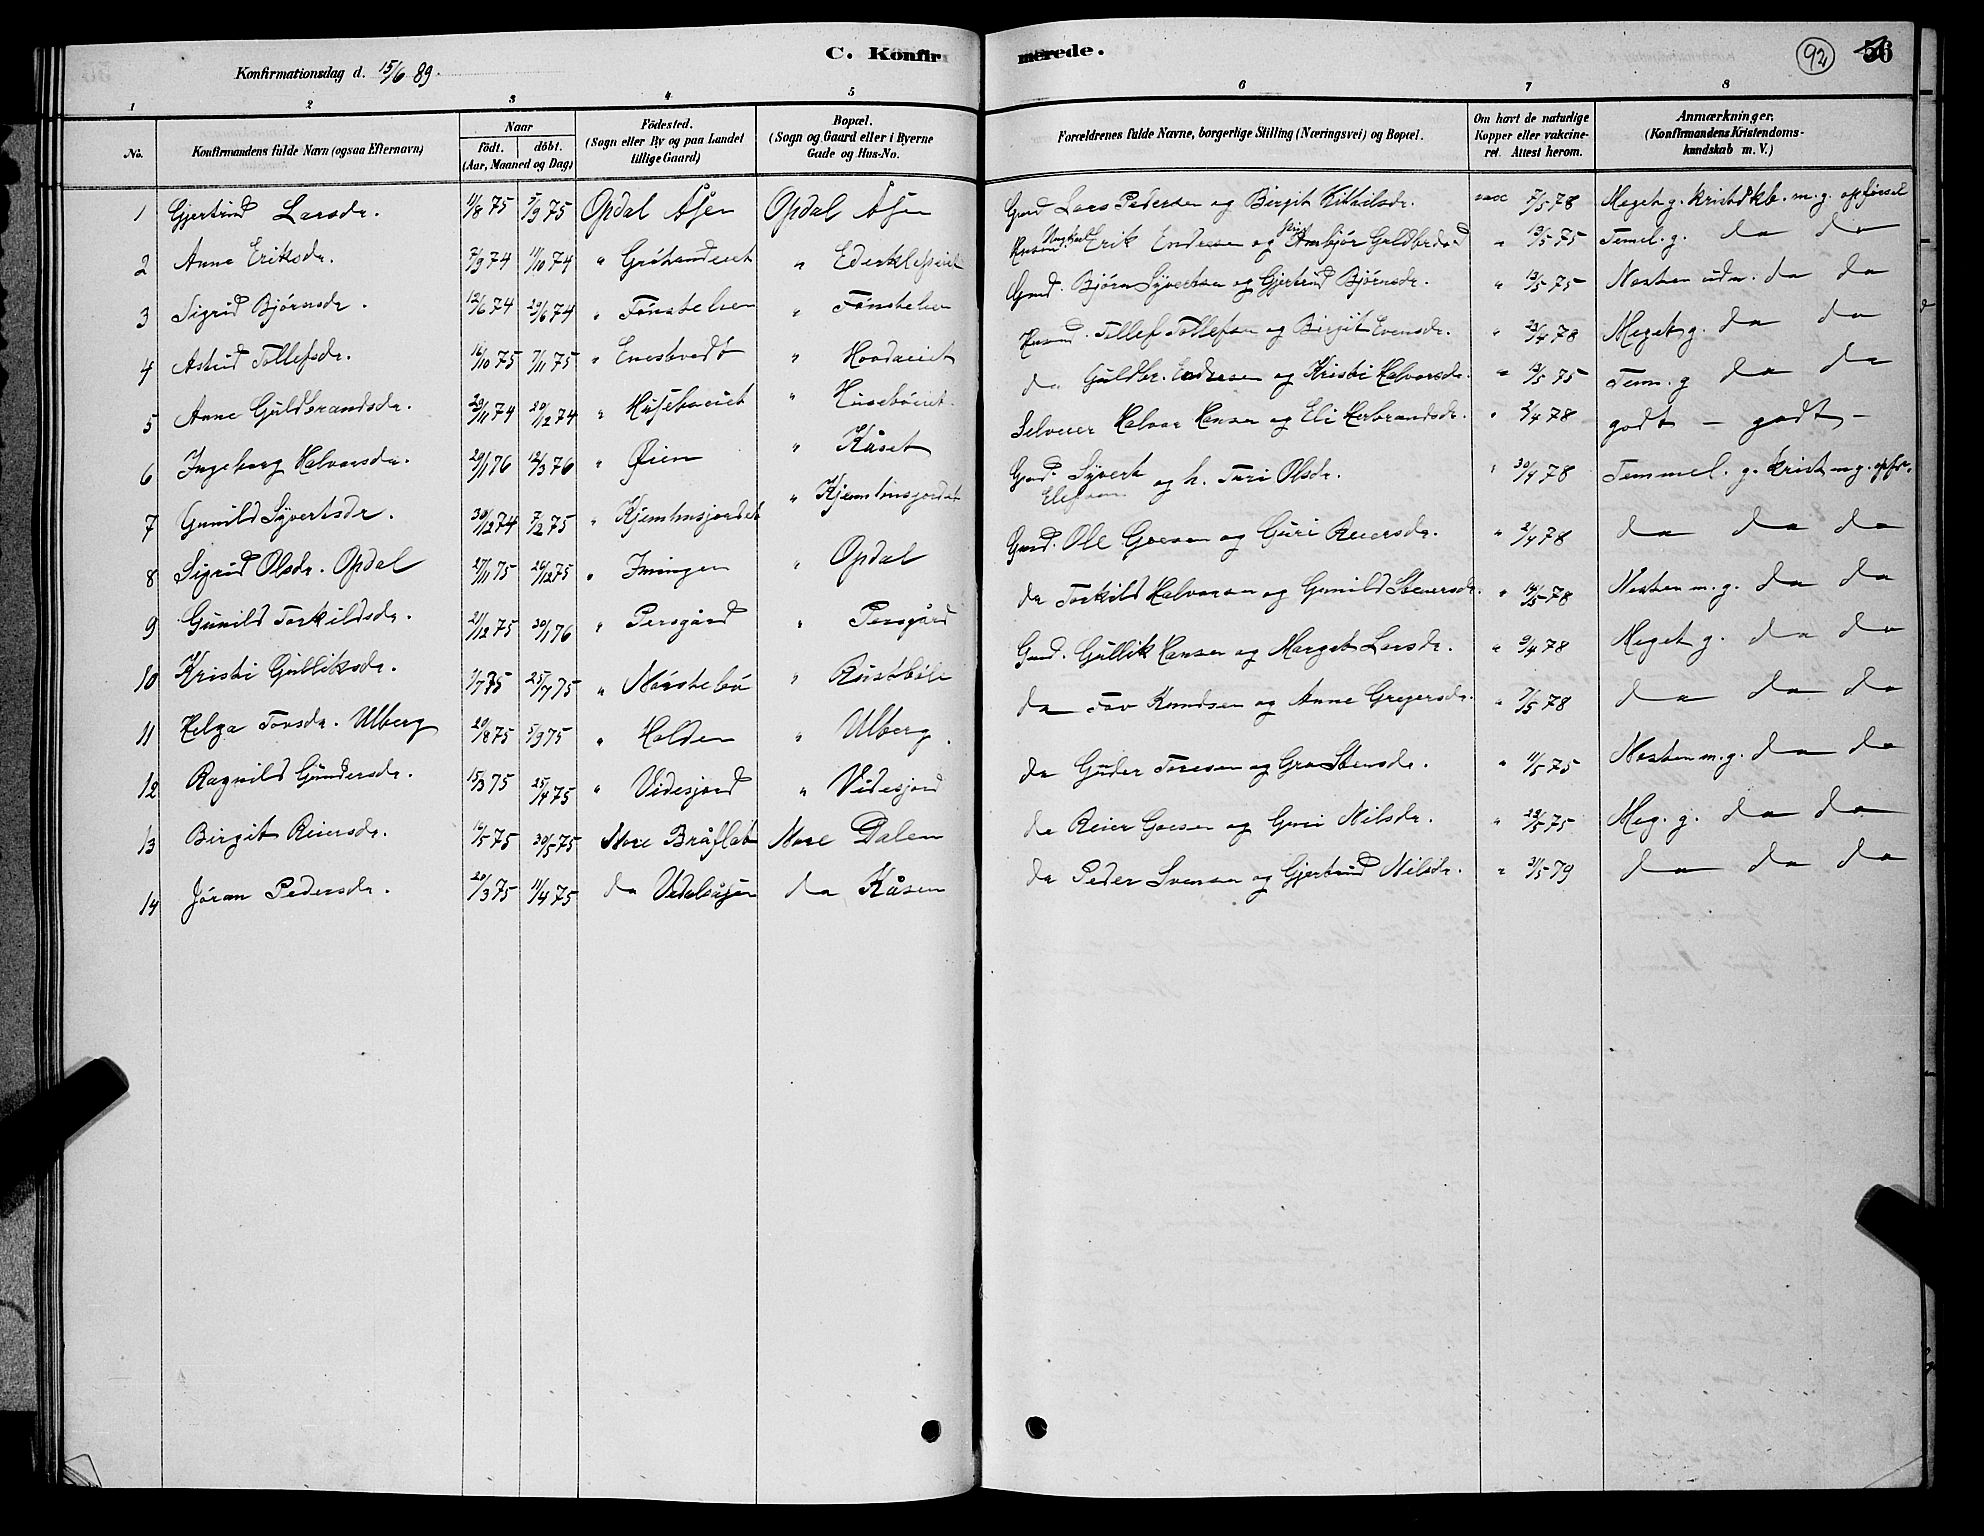 C. Konfirmerede.
(92) 56
Konfirmationsdag d. 15/6 89.
1 2 3 4 5 6 7 8
No.
Konfirmandens fulde Navn (ogsaa Efternavn)
Naar
födt. döbt.
(Aar, Maaned og Dag)
Födested.
(Sogn eller By og paa Landet
tillige Gaard)
Bopæl.
(Sogn og Gaard eller i Byerne
Gade og Hus-No.
Forældrenes fulde Navne, borgerlige Stilling (Næringsvei) og Bopæl.
Om havt de naturlige
Kopper eller vakcine-
ret. Attest herom.
Anmærkninger.
(Konfirmandens Kristendoms-
kundskab m. V.)
1 Gjertrud Larsdr. 11/8 75 5/9 75 Opdal Åsen Opdal Åsen Gmd Lars Pedersen og Birgit Kittilsdr. vacc 7/5 78 Meget g. kristdkb. m. g. opførsel
2 Anne Eriksdr. 7/9 74 11/10 74 " " Erik Endresen og Ambjør Guldbrdsd " 13/5 75 Temel. g. do do
3 Sigrid Bjørnsdr. 12/6 74 29/6 74 " Fønstelien " Fønstelien Gmd. Bjørn Syvertsen og Gjertrud Bjørnsdr. " 13/5 75 Nesten udm. do do
4 Astrid Tollefsdr. 16/10 75 7/11 75 " " Hoodaeiet Husmd. Tollef Tollefsen og Birgit Evensdr. " 23/4 78 Meget g. do do
5 Anne Guldbrandsdr. 29/11 74 20/12 74 " Husebøeiet " Husebøeiet. do Guldbr. Endresen og Kristi Halvorsdr. " 13/5 75 Tem. g do do
6 Ingeborg Halvorsdr. 29/1 76 12/3 76 " Øien " Kåset Selveier Halvor Hansen og Eli Herbrandsdr. " 2/4 78 godt – godt –
7 Gunild Syvertsdr. 30/12 74 7/2 75 " Kjemhusjordet " Kjemhusjordet Gmd. Syvert og h. Turi Olsdr. " 30/4 78 Temmel. g. krist m g. opfør.
8 Sigrid Olsdr. Opdal 27/11 75 26/12 75 " Imingen " Opdal Gmd. Ole Goesen og Guri Reiersdr. " 2/4 78 do do do
9 Gunild Torkildsdr. 21/12 75 30/1 76 " Persgård " Persgård do Torkild Halvorsen og Gunild Stenersdr. " 14/5 78 Nesten m. g. do do
10 Kristi Gulliksdr. 1/7 75 25/7 75 " Nørstebø " Gmd. Gullik Hansen og Marget Larsdr. " 9/4 78 Meget g. do do
11 Helga Tovsdr. Ulberg 20/8 75 5/9 75 " Holden " Ulberg. do Tov Knudsen og Anne Gregersdr. " 7/5 78 do do do
12 Ragnild Gundersdr. 15/3 75 25/4 75 " Videsjord " Videsjord do Guder Toresen og Gro Stensdr. " 11/5 75 Nesten m. g. do do
13 Birgit Reiersdr. 14/5 75 30/5 75 Nore Bråflat Nore Dalen do Reier Goesen og Guri Nilsdr. " 29/5 75 Meg. g. do do
14 Jøran Pedersdr. 20/3 75 11/4 75 do do Kåsen do Peder Svensen og Gjertrud Nilsdr. " 31/5 79 do do do